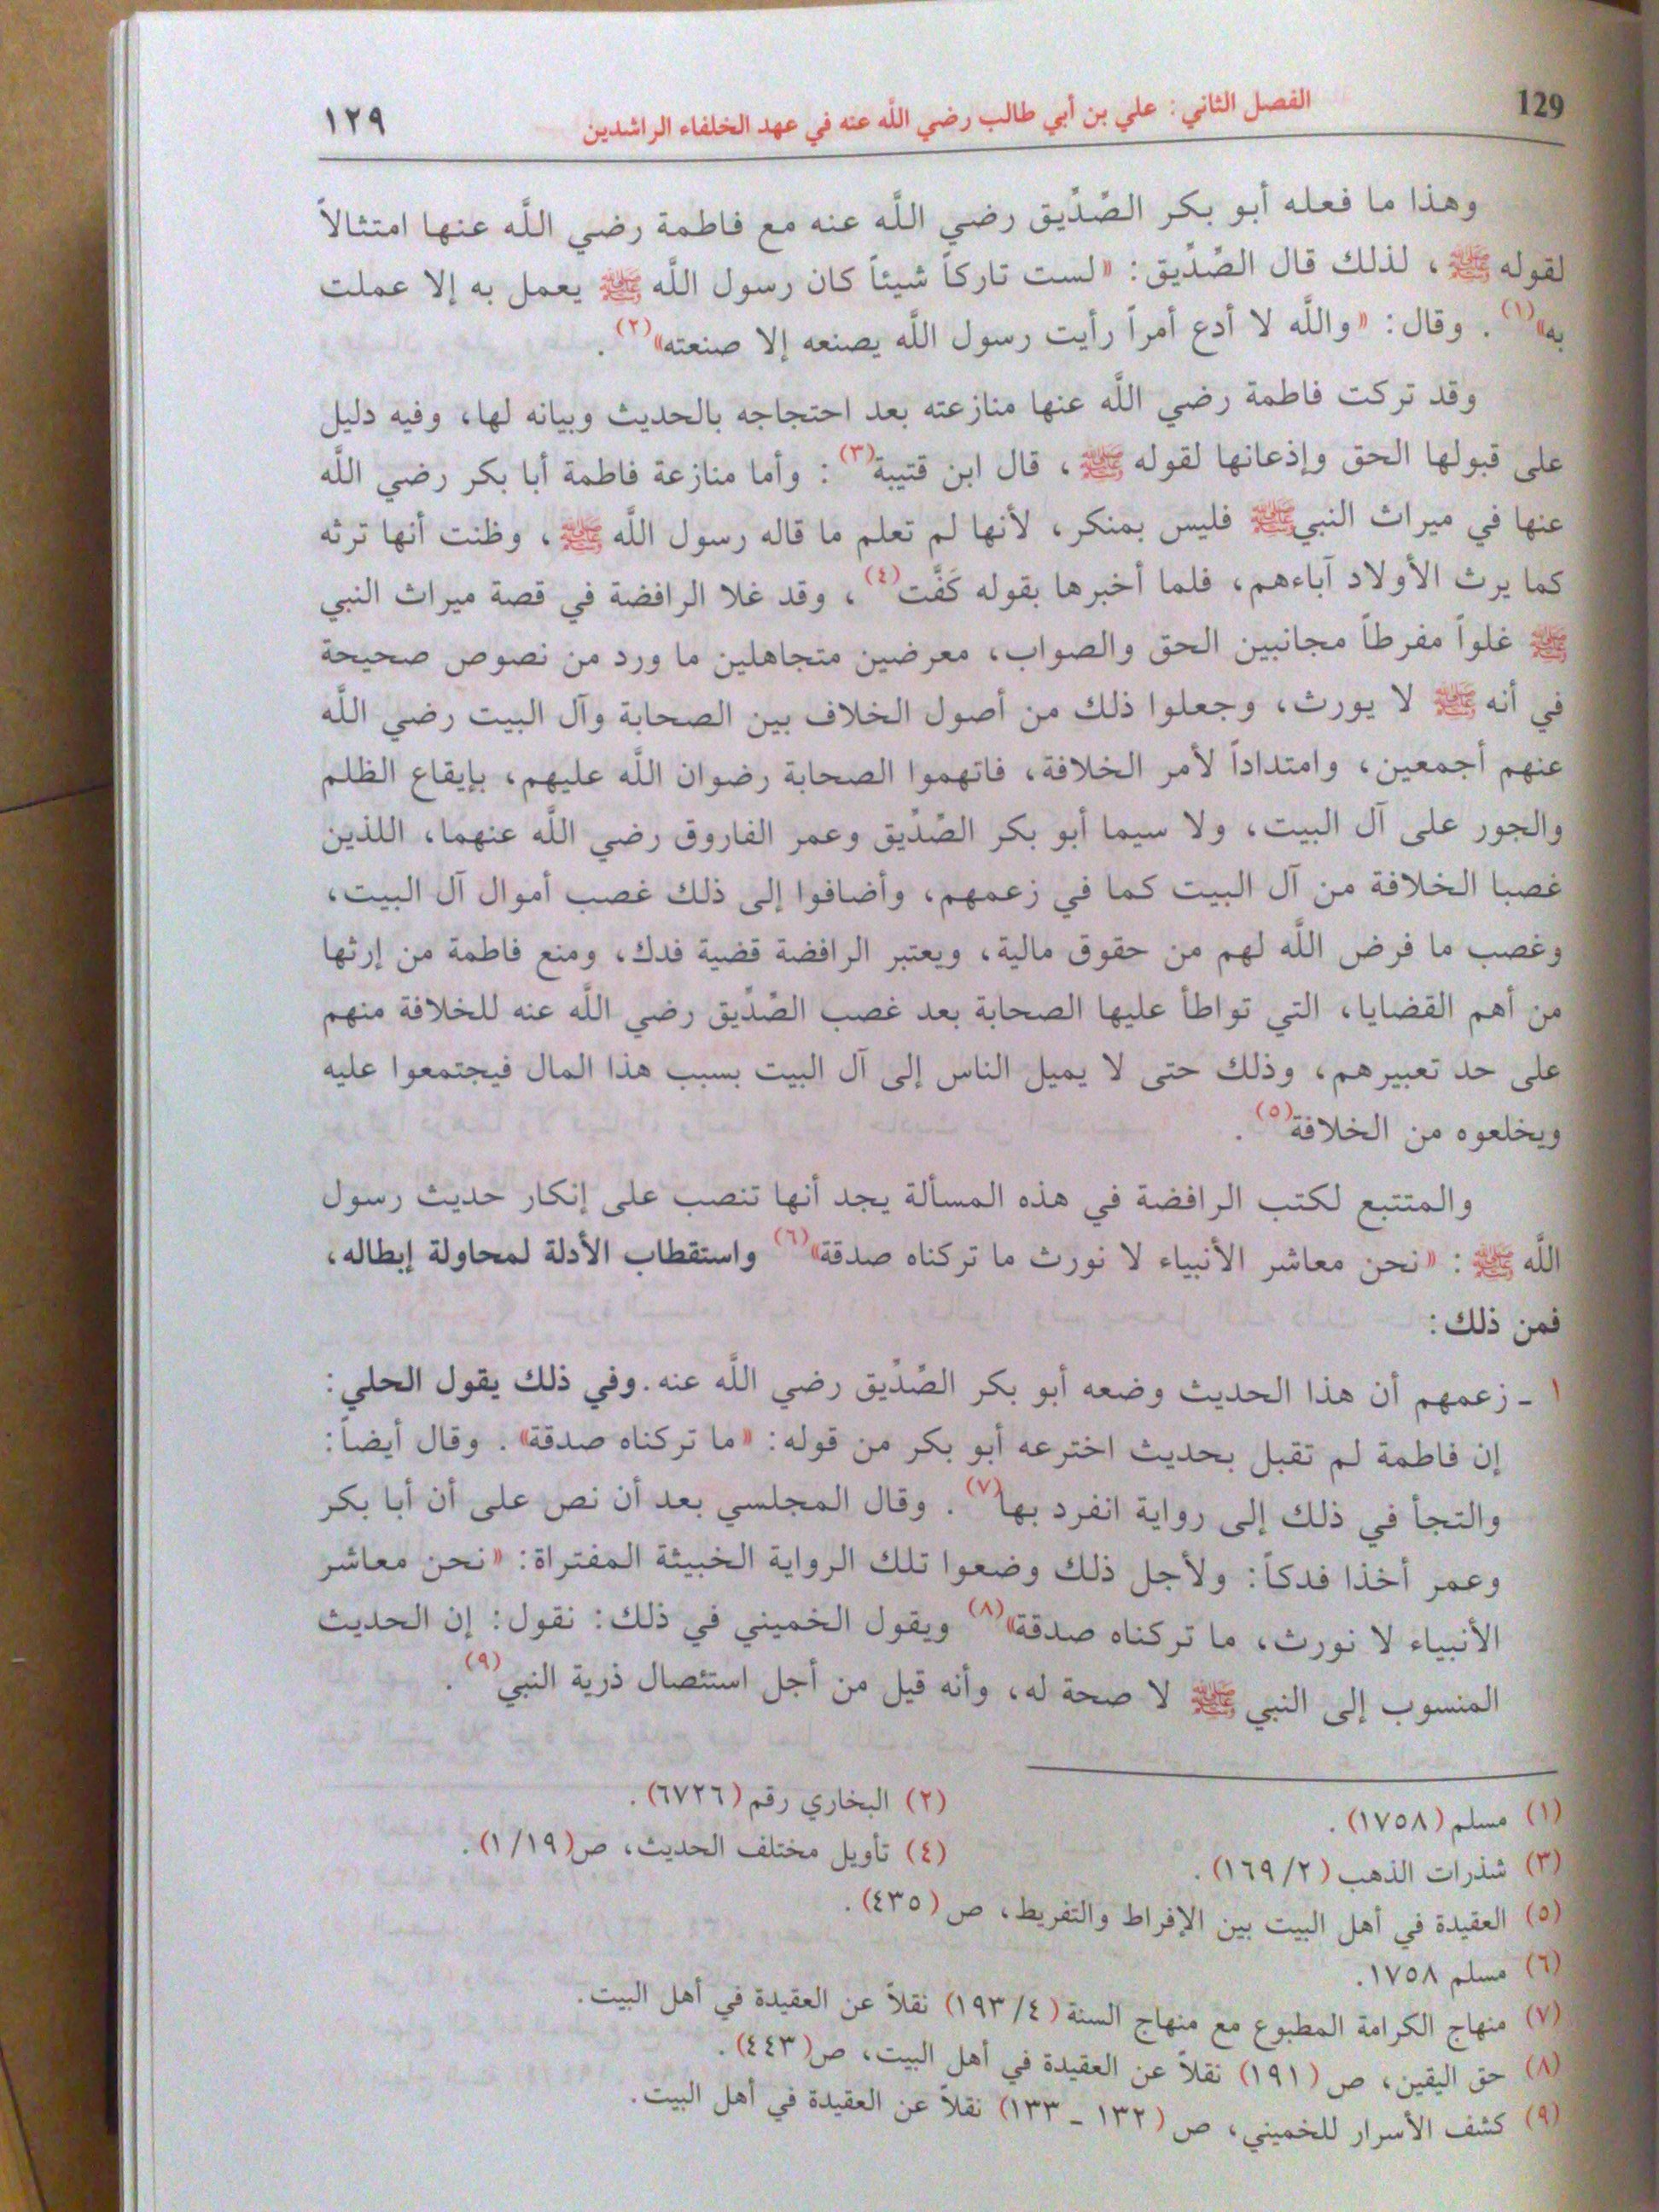 129
الفصل الثاني: علي بن أبي طالب رضي اللَّه عنه في عهد الخلفاء الراشدين
١٢٩
وهذا ما فعله أبو بكر الصِّدِّيق رضي اللَّه عنه مع فاطمة رضي اللَّه عنها امتثالاً
لقوله ﷺ، لذلك قال الصِّدِّيق: «لست تاركاً شيئاً كان رسول اللَّه ﷺ يعمل به إلا عملت
به»(١). وقال: «واللَّه لا أدع أمراً رأيت رسول اللَّه يصنعه إلا صنعته»(٢).
وقد تركت فاطمة رضي اللَّه عنها منازعته بعد احتجاجه بالحديث وبيانه لها، وفيه دليل
على قبولها الحق وإذعانها لقوله ﷺ، قال ابن قتيبة(٣): وأما منازعة فاطمة أبا بكر رضي اللَّه
عنها في ميراث النبي ﷺ فليس بمنكر، لأنها لم تعلم ما قاله رسول اللَّه ﷺ، وظنت أنها ترثه
كما يرث الأولاد آباءهم، فلما أخبرها بقوله كَفَّت(٤)، وقد غلا الرافضة في قصة ميراث النبي
ﷺ غلواً مفرطاً مجانبين الحق والصواب، معرضين متجاهلين ما ورد من نصوص صحيحة
في أنه ﷺ لا يورث، وجعلوا ذلك من أصول الخلاف بين الصحابة وآل البيت رضي اللَّه
عنهم أجمعين، وامتداداً لأمر الخلافة، فاتهموا الصحابة رضوان اللَّه عليهم، بإيقاع الظلم
والجور على آل البيت، ولا سيما أبو بكر الصِّدِّيق وعمر الفاروق رضي اللَّه عنهما، اللذين
غصبا الخلافة من آل البيت كما في زعمهم، وأضافوا إلى ذلك غصب أموال آل البيت،
وغصب ما فرض اللَّه لهم من حقوق مالية، ويعتبر الرافضة قضية فدك، ومنع فاطمة من إرثها
من أهم القضايا، التي تواطأ عليها الصحابة بعد غصب الصِّدِّيق رضي اللَّه عنه للخلافة منهم
على حد تعبيرهم، وذلك حتى لا يميل الناس إلى آل البيت بسبب هذا المال فيجتمعوا عليه
ويخلعوه من الخلافة(٥).
والمتتبع لكتب الرافضة في هذه المسألة يجد أنها تنصب على إنكار حديث رسول
اللَّه ﷺ: «نحن معاشر الأنبياء لا نورث ما تركناه صدقة»(٦) واستقطاب الأدلة لمحاولة إبطاله،
فمن ذلك:
١ ـ زعمهم أن هذا الحديث وضعه أبو بكر الصِّدِّيق رضي اللَّه عنه. وفي ذلك يقول الحلي:
إن فاطمة لم تقبل بحديث اخترعه أبو بكر من قوله: «ما تركناه صدقة». وقال أيضاً:
والتجأ في ذلك إلى رواية انفرد بها(٧). وقال المجلسي بعد أن نص على أن أبا بكر
وعمر أخذا فدكاً: ولأجل ذلك وضعوا تلك الرواية الخبيثة المفتراة: «نحن معاشر
الأنبياء لا نورث، ما تركناه صدقة»(٨) ويقول الخميني في ذلك: نقول: إن الحديث
المنسوب إلى النبي ﷺ لا صحة له، وأنه قيل من أجل استئصال ذرية النبي(٩).
(١) مسلم (١٧٥٨).
(٢) البخاري رقم (٦٧٢٦).
(٣) شذرات الذهب (١٦٩/٢).
(٤) تأويل مختلف الحديث، ص(١/١٩).
(٥) العقيدة في أهل البيت بين الإفراط والتفريط، ص (٤٣٥).
(٦) مسلم ١٧٥٨.
(٧) منهاج الكرامة المطبوع مع منهاج السنة (١٩٣/٤) نقلاً عن العقيدة في أهل البيت.
(٨) حق اليقين، ص (١٩١) نقلاً عن العقيدة في أهل البيت، ص(٤٤٣).
(٩) كشف الأسرار للخميني، ص (١٣٢ ـ ١٣٣) نقلاً عن العقيدة في أهل البيت.